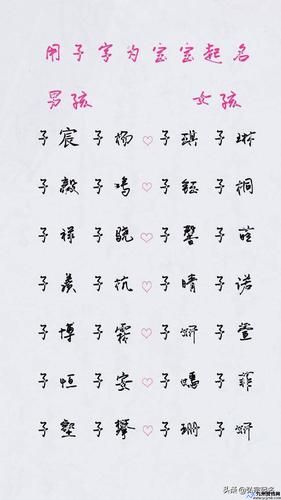 用子字为宝宝起名
男孩 女孩
子宸 子杨 ♡ 子琪 子琳
子毅 子鸣 ♡ 子钰 子桐
子祥 子骁 ♡ 子馨 子
子羲 子杭 ♡ 子晴 子诺
子博 子霖 ♡ 子妍 子萱
子恒 子安 ♡ 子嫣 子菲
子 子攀 ♡ 子珊 子妍
头条